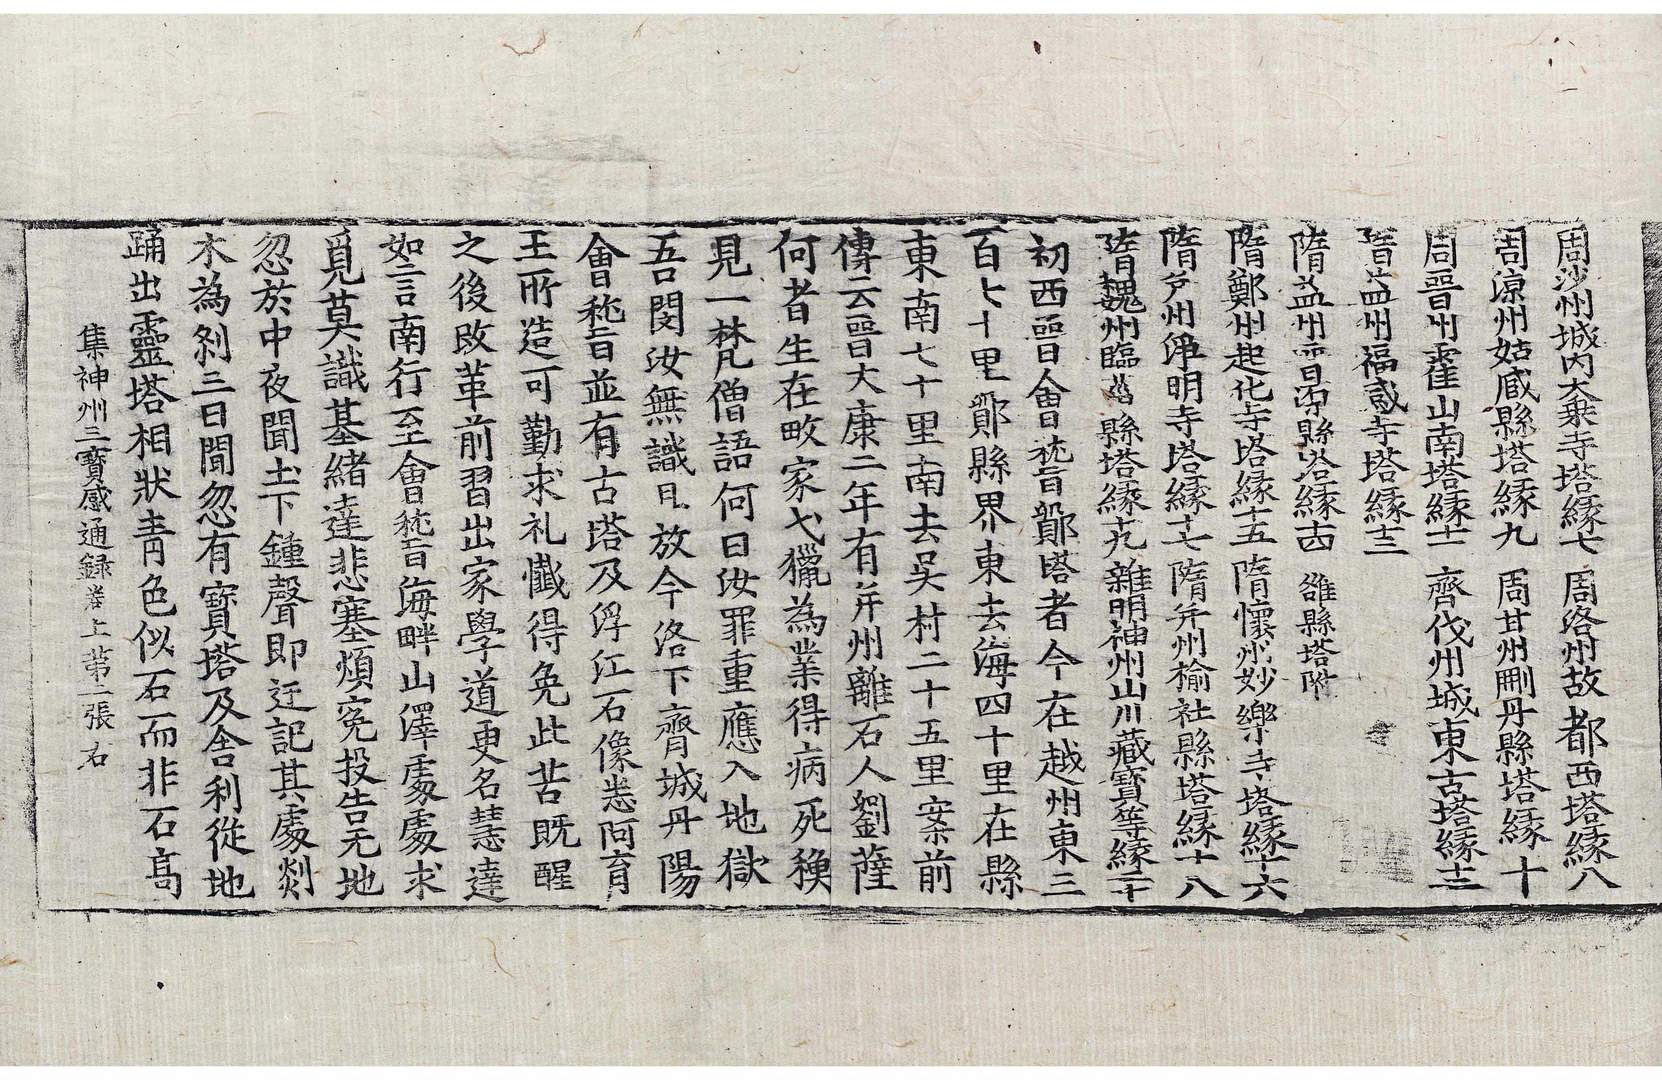 周沙州城内大乗寺塔縁七　周洛州故都西塔縁八
周涼州姑臧縣塔縁九　周甘州刪丹縣塔縁十
周晉州霍山南塔縁十一　齊代州城東古塔縁十二
隋益州福感寺塔縁十三
隋益州晉源縣塔縁十四　雒縣塔附
隋鄭州起化寺塔縁十五　隋懷州妙樂寺塔縁十六
隋并州淨明寺塔縁十七　隋并州榆社縣塔縁十八
隋魏州臨黃縣塔縁十九　雜明神州山川藏寶等縁二十
初西晉會稽鄮塔者今在越州東三
百七十里鄮縣界東去海四十里在縣
東南七十里南去吳村二十五里案前
傳云晉太康二年有并州離石人劉薩
何者生在畋家弋獵為業得病死穌
見一梵僧語何曰汝罪重應入地獄
吾閔汝無識且放今洛下齊城丹陽
會稽並有古塔及浮江石像悉阿育
王所造可勤求礼懺得免此苦既醒
之後改革前習出家學道更名慧達
如言南行至會稽海畔山澤處處求
覓莫識基緒達悲塞煩冤投告无地
忽於中夜聞土下鍾聲即迂記其處剡
木為剎三日間忽有寶塔及舍利從地
踊出靈塔相狀青色似石而非石高
集神州三寶感通録卷上第二張右